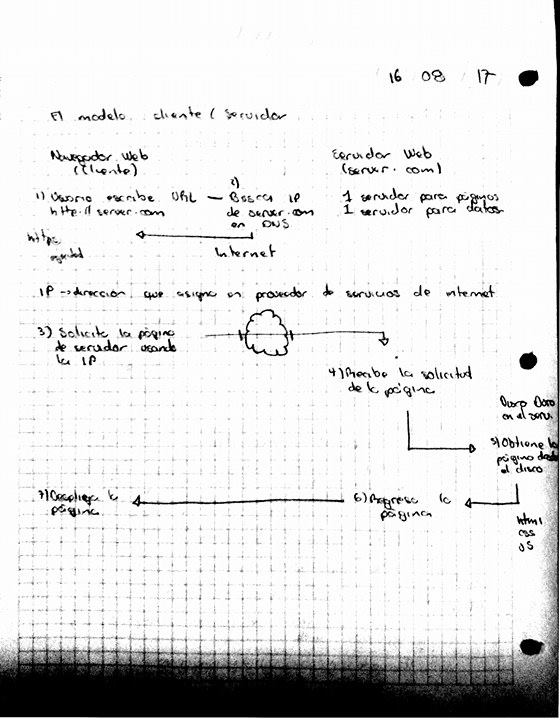 16 08 17
El modelo cliente / servidor
Navegador Web
(Cliente)
Servidor Web
(server.com)
1) Usuario escribe URL
http://server.com
2)
Busca IP
de server.com
en DNS
1 servidor para páginas
1 servidor para datos
https
seguridad
Internet
IP → dirección que asigna un proveedor de servicios de internet
3) Solicita la página
de servidor usando
la IP
4) Recibe la solicitud
de la página
Disco Duro
en el servi
5) Obtiene la
página desde
el disco
7) Despliega la
página
6) Regresa la
página
html
css
JS